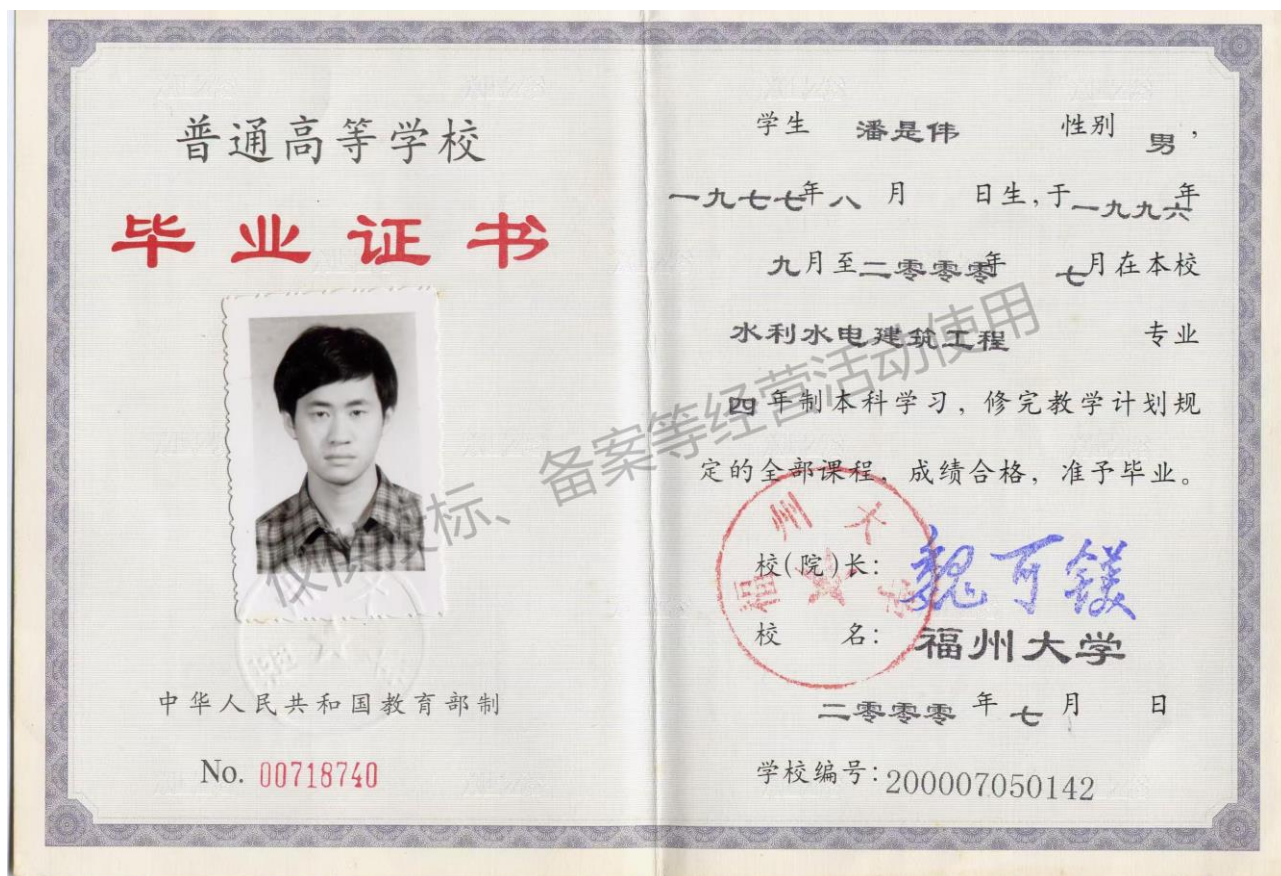 普通高等学校
毕业证书
中华人民共和国教育部制
No. 00718740
学生 潘是伟 性别 男,
一九七七年八月 日生,于一九九六年
九月至二零零零年 七月在本校
水利水电建筑工程 专业
四年制本科学习,修完教学计划规
定的全部课程,成绩合格,准予毕业。
校(院)长: 魏可镁
校 名: 福州大学
二零零零年七月 日
学校编号:200007050142
福州大学
福州大学
仅供投标、备案等经营活动使用